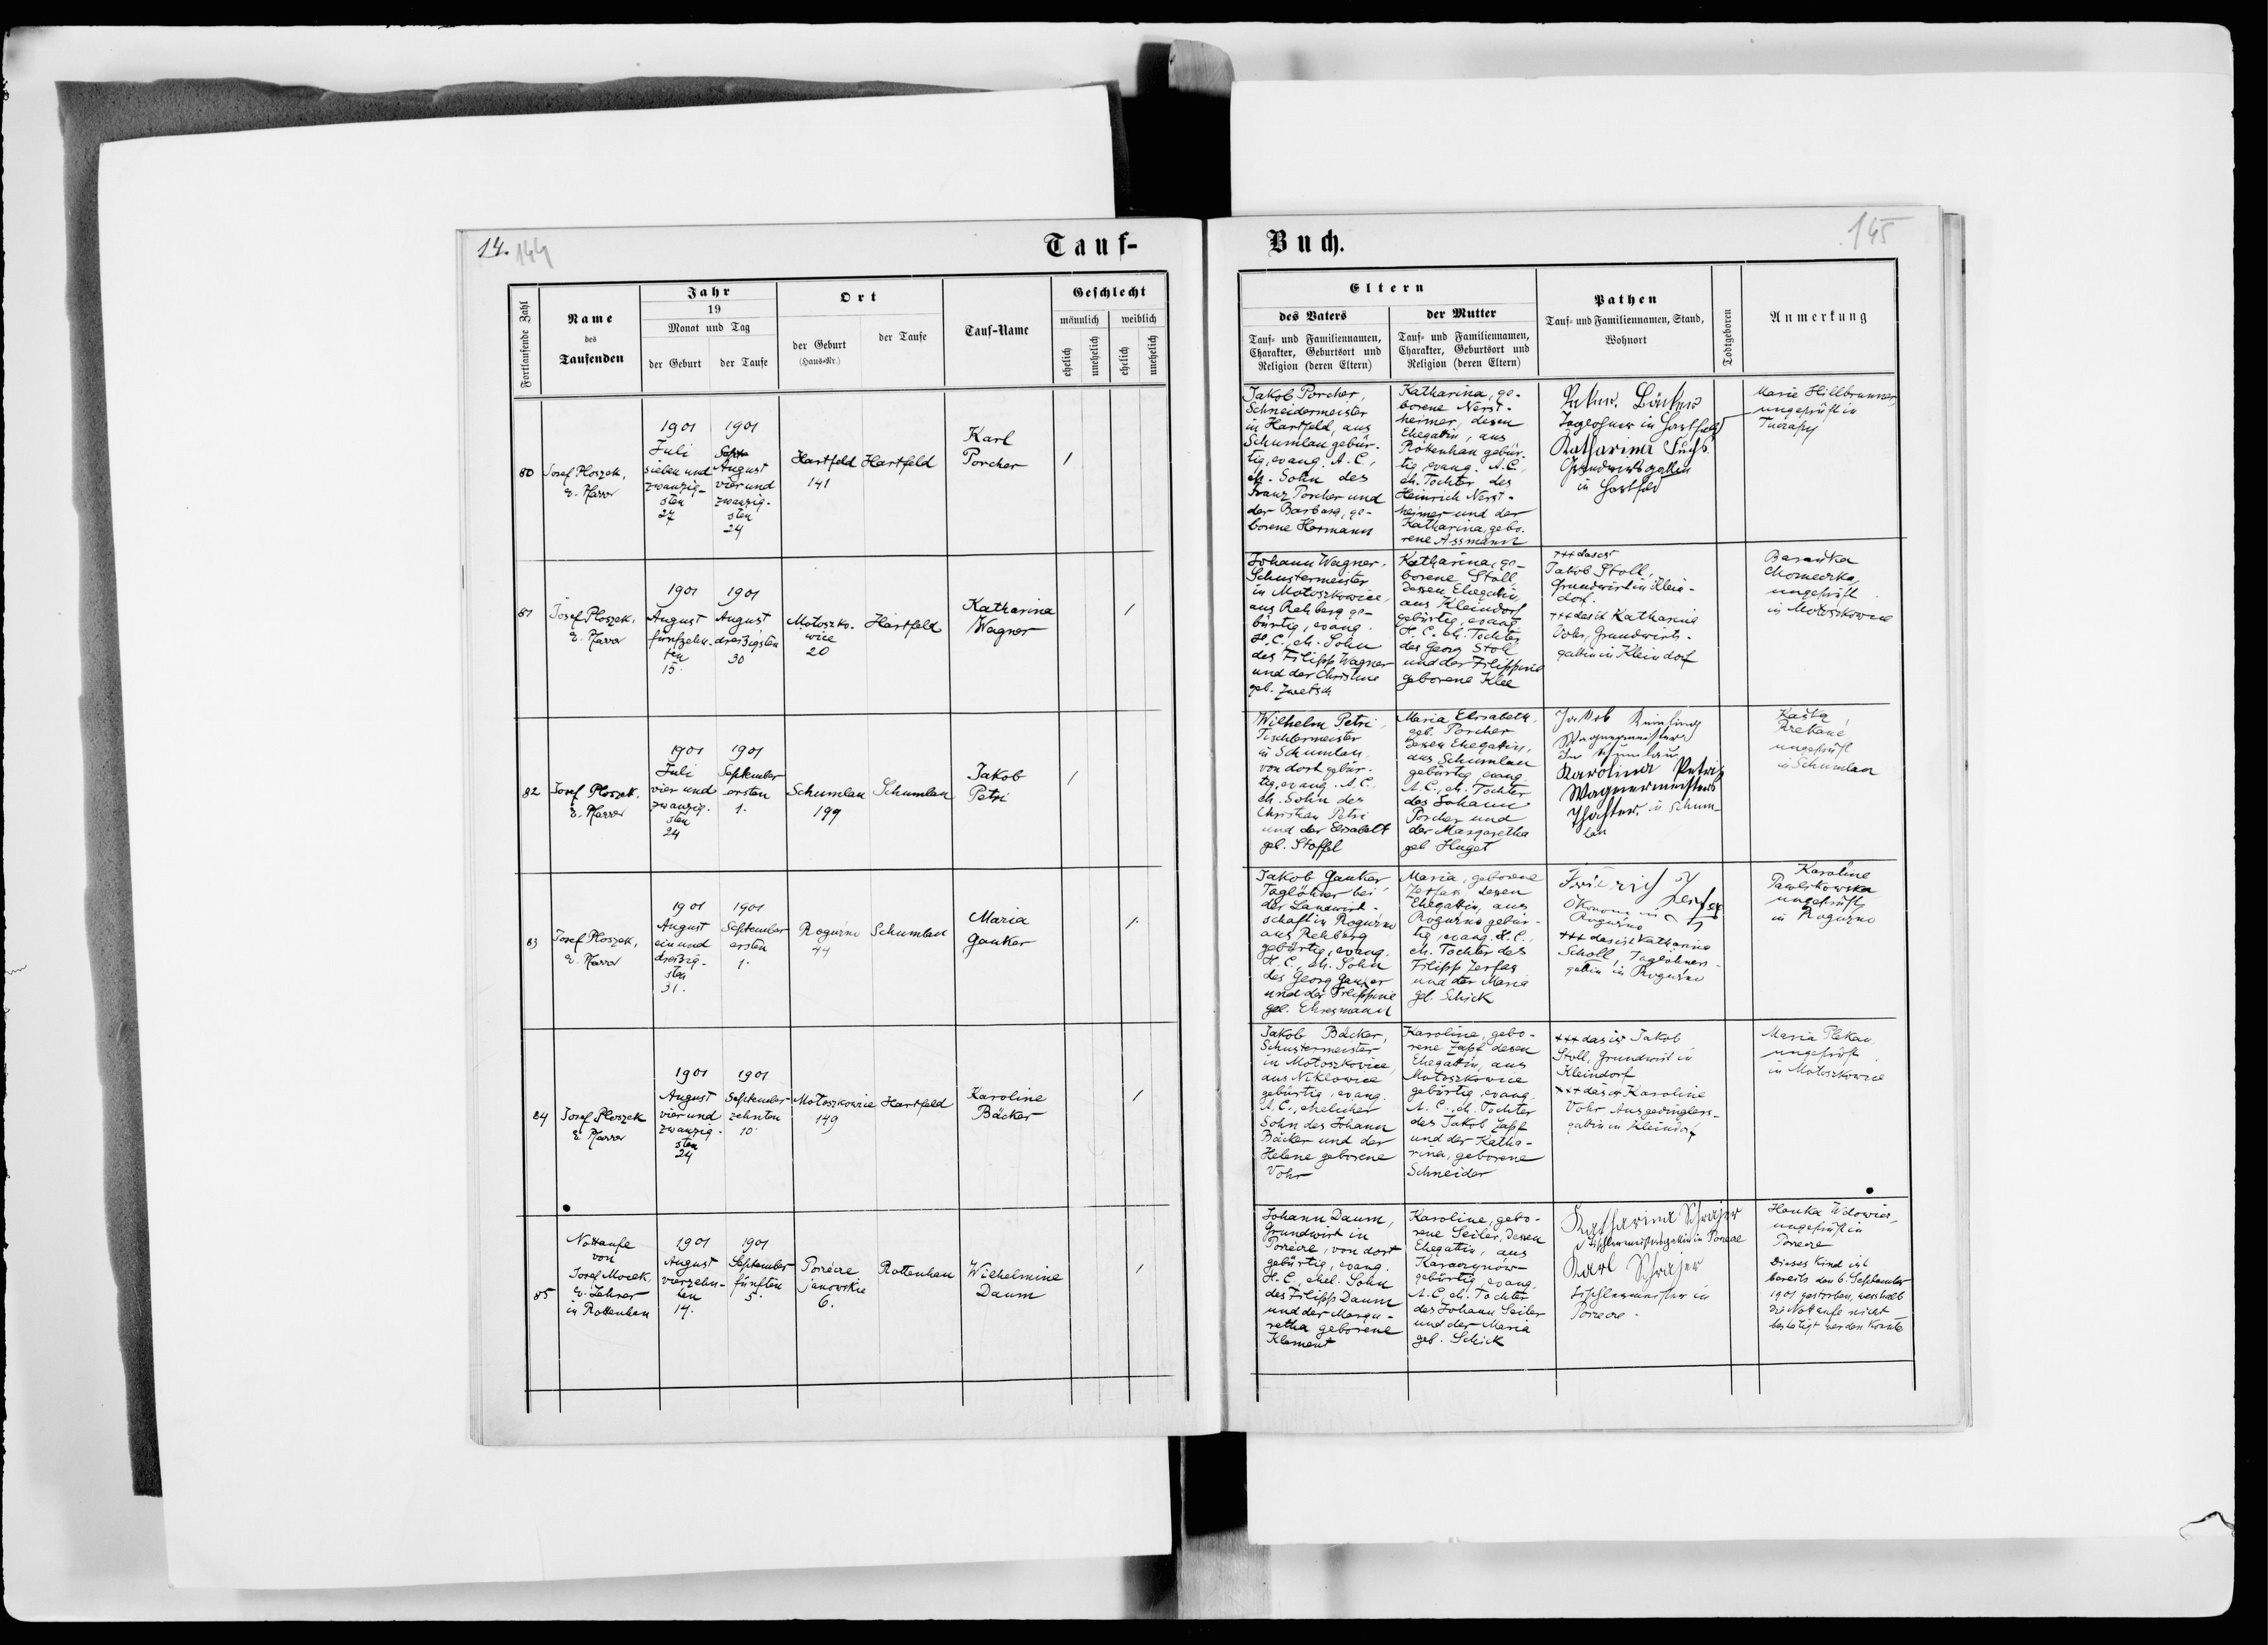 14. 144
Tauf-
Fortlaufende Zahl
Name
des
Taufenden
Jahr
19
Monat und Tag
der Geburt
der Taufe
Ort
der Geburt
(Haus-Nr.)
der Taufe
Tauf-Name
Geschlecht
männlich
weiblich
ehelich
unehelich
ehelich
unehelich
80
Josef Ploszek,
ev. Pfarrer
1901
Juli
sieben und
zwanzig-
sten
27
1901
August
vier und
zwanzig-
sten
24
Hartfeld
141
Hartfeld
Karl
Porcher
/
81
Josef Ploszek,
ev. Pfarrer
1901
August
fünfzehn-
ten
15.
1901
August
dreißigsten
30
Motoszko-
wice
20
Hartfeld
Katharina
Wagner
/
82
Josef Ploszek.
ev. Pfarrer
1901
Juli
vier und
zwanzig-
sten
24
1901
September
ersten
1.
Schumlau
199
Schumlau
Jakob
Petri
/
83
Josef Ploszek,
ev. Pfarrer
1901
August
ein und
dreißig-
sten
31.
1901
September
ersten
1.
Rogużno
44
Schumlau
Maria
Ganker
/
84
Josef Ploszek
ev. Pfarrer
1901
August
vier und
zwanzig-
sten
24
1901
September
zehnten
10.
Motoszkowice
149
Hartfeld
Karoline
Bäcker
/
85
Nottaufe
von
Josef Mocek,
ev. Lehrer
in Rottenhan
1901
August
vierzehn-
ten
14.
1901
September
fünften
5.
Porzecze
janowskie
6.
Rottenhan
Wilhelmine
Daum
/
Buch.
145
Eltern
des Vaters
Tauf- und Familiennamen,
Charakter, Geburtsort und
Religion (deren Eltern)
der Mutter
Tauf- und Familiennamen,
Charakter, Geburtsort und
Religion (deren Eltern)
Pathen
Tauf- und Familiennamen, Stand,
Wohnort
Todtgeboren
Anmerkung
Jakob Porcher,
Schneidermeister
in Hartfeld, aus
Schumlau gebür-
tig, evang. A. C.,
eh. Sohn des
Franz Porcher und
der Barbara, ge-
borene Hermann
Katharina, ge-
borene Nerst-
heimer, dessen
Ehegattin, aus
Rottenhan gebür-
tig, evang. A. C.,
eh. Tochter des
Heinrich Nerst-
heimer und der
Katharina, gebo-
rene Assmann
Peter Bäcker
Taglöhner in Hartfeld
Katharina Fuchs
Grundwirtsgattin
in Hartfeld
Marie Hillbrunner,
ungeprüft in
Johann Wagner,
Schustermeister
in Motoszkowice,
aus Rehberg ge-
bürtig, evang.
H. C., eh. Sohn
des Filipp Wagner
und der Christine
geb. Zwetsch
Katharina, ge-
borene Stoll,
dessen Ehegattin,
aus Kleindorf
gebürtig, evang.
H. C. eh. Tochter
des Georg Stoll
und der Filippine
geborene Klee
+++ das ist
Jakob Stoll,
Grundwirt in Klein-
dorf.
+++ das ist Katharina
Vohr, Grundwirts-
gattin in Kleindorf
ungeprüft
in Motoszkowice
Wilhelm Petri,
Tischlermeister
in Schumlau,
von dort gebür-
tig, evang. A. C.,
eh. Sohn des
Christian Petri
und der Elisabeth
geb. Stoffel
Maria Elisabeth,
geb. Porcher
dessen Ehegattin,
aus Schumlau
gebürtig, evang.
A. C., eh. Tochter
des Johann
Porcher und
der Margaretha
geb. Huget
Jakob
Wagnermeister
in Schumlau
Karolina Petri
Wagnermeisters
Tochter, in Schum-
lau
Kaśka
ungeprüft
in Schumlau
Jakob Ganker
Taglöhner bei
der Landwirt-
schaft in Rogużno
aus Rehberg
gebürtig, evang.
H. C., eh. Sohn
des Georg Ganker
und der Filippine
geb. Ehresmann
Maria, geborene
Zerfas, dessen
Ehegattin, aus
Rogużno gebür-
tig, evang. H. C.,
eh. Tochter des
Filipp Zerfas
und der Maria
geb. Schick
Friedrich Zerfas
Ökonom in
Rogużno
+++ das ist Katharina
Scholl, Taglöhners-
gattin in Rogużno
Karoline
Pawlikowska
ungeprüft
in Rogużno
Jakob Bäcker,
Schustermeister
in Motoszkowice,
aus Niklowice
gebürtig, evang.
A. C., ehelicher
Sohn des Johann
Bäcker und der
Helene geborene
Vohr
Karoline, gebo-
rene Zapf dessen
Ehegattin, aus
Motoszkowice
gebürtig, evang.
A. C., eh. Tochter
des Jakob Zapf
und der Katha-
rina, geborene
Schneider
+++ das ist Jakob
Stoll, Grundwirt in
Kleindorf
+++ das ist Karoline
Vohr, Ausgedinglers-
gattin in Kleindorf
Maria Plekan,
ungeprüft
in Motoszkowice
Johann Daum,
Grundwirt in
Porzecze, von dort
gebürtig, evang.
H. C., ehel. Sohn
des Filipp Daum
und der Marga-
retha geborene
Klement
Karoline, gebo-
rene Seiler, dessen
Ehegattin, aus
Karaczynów
gebürtig, evang.
A. C., eh. Tochter
des Johann Seiler
und der Maria
geb. Schick
Katharina Schrajer
Tischlermeistersgattin in Porzecze
Karl Schrajer
Tischlermeister in
Porzecze.
Hanka Wdowicz,
ungeprüft in
Porzecze
Dieses Kind ist
bereits den 6. September
1901 gestorben, weshalb
die Nottaufe nicht
bestätigt werden konnte